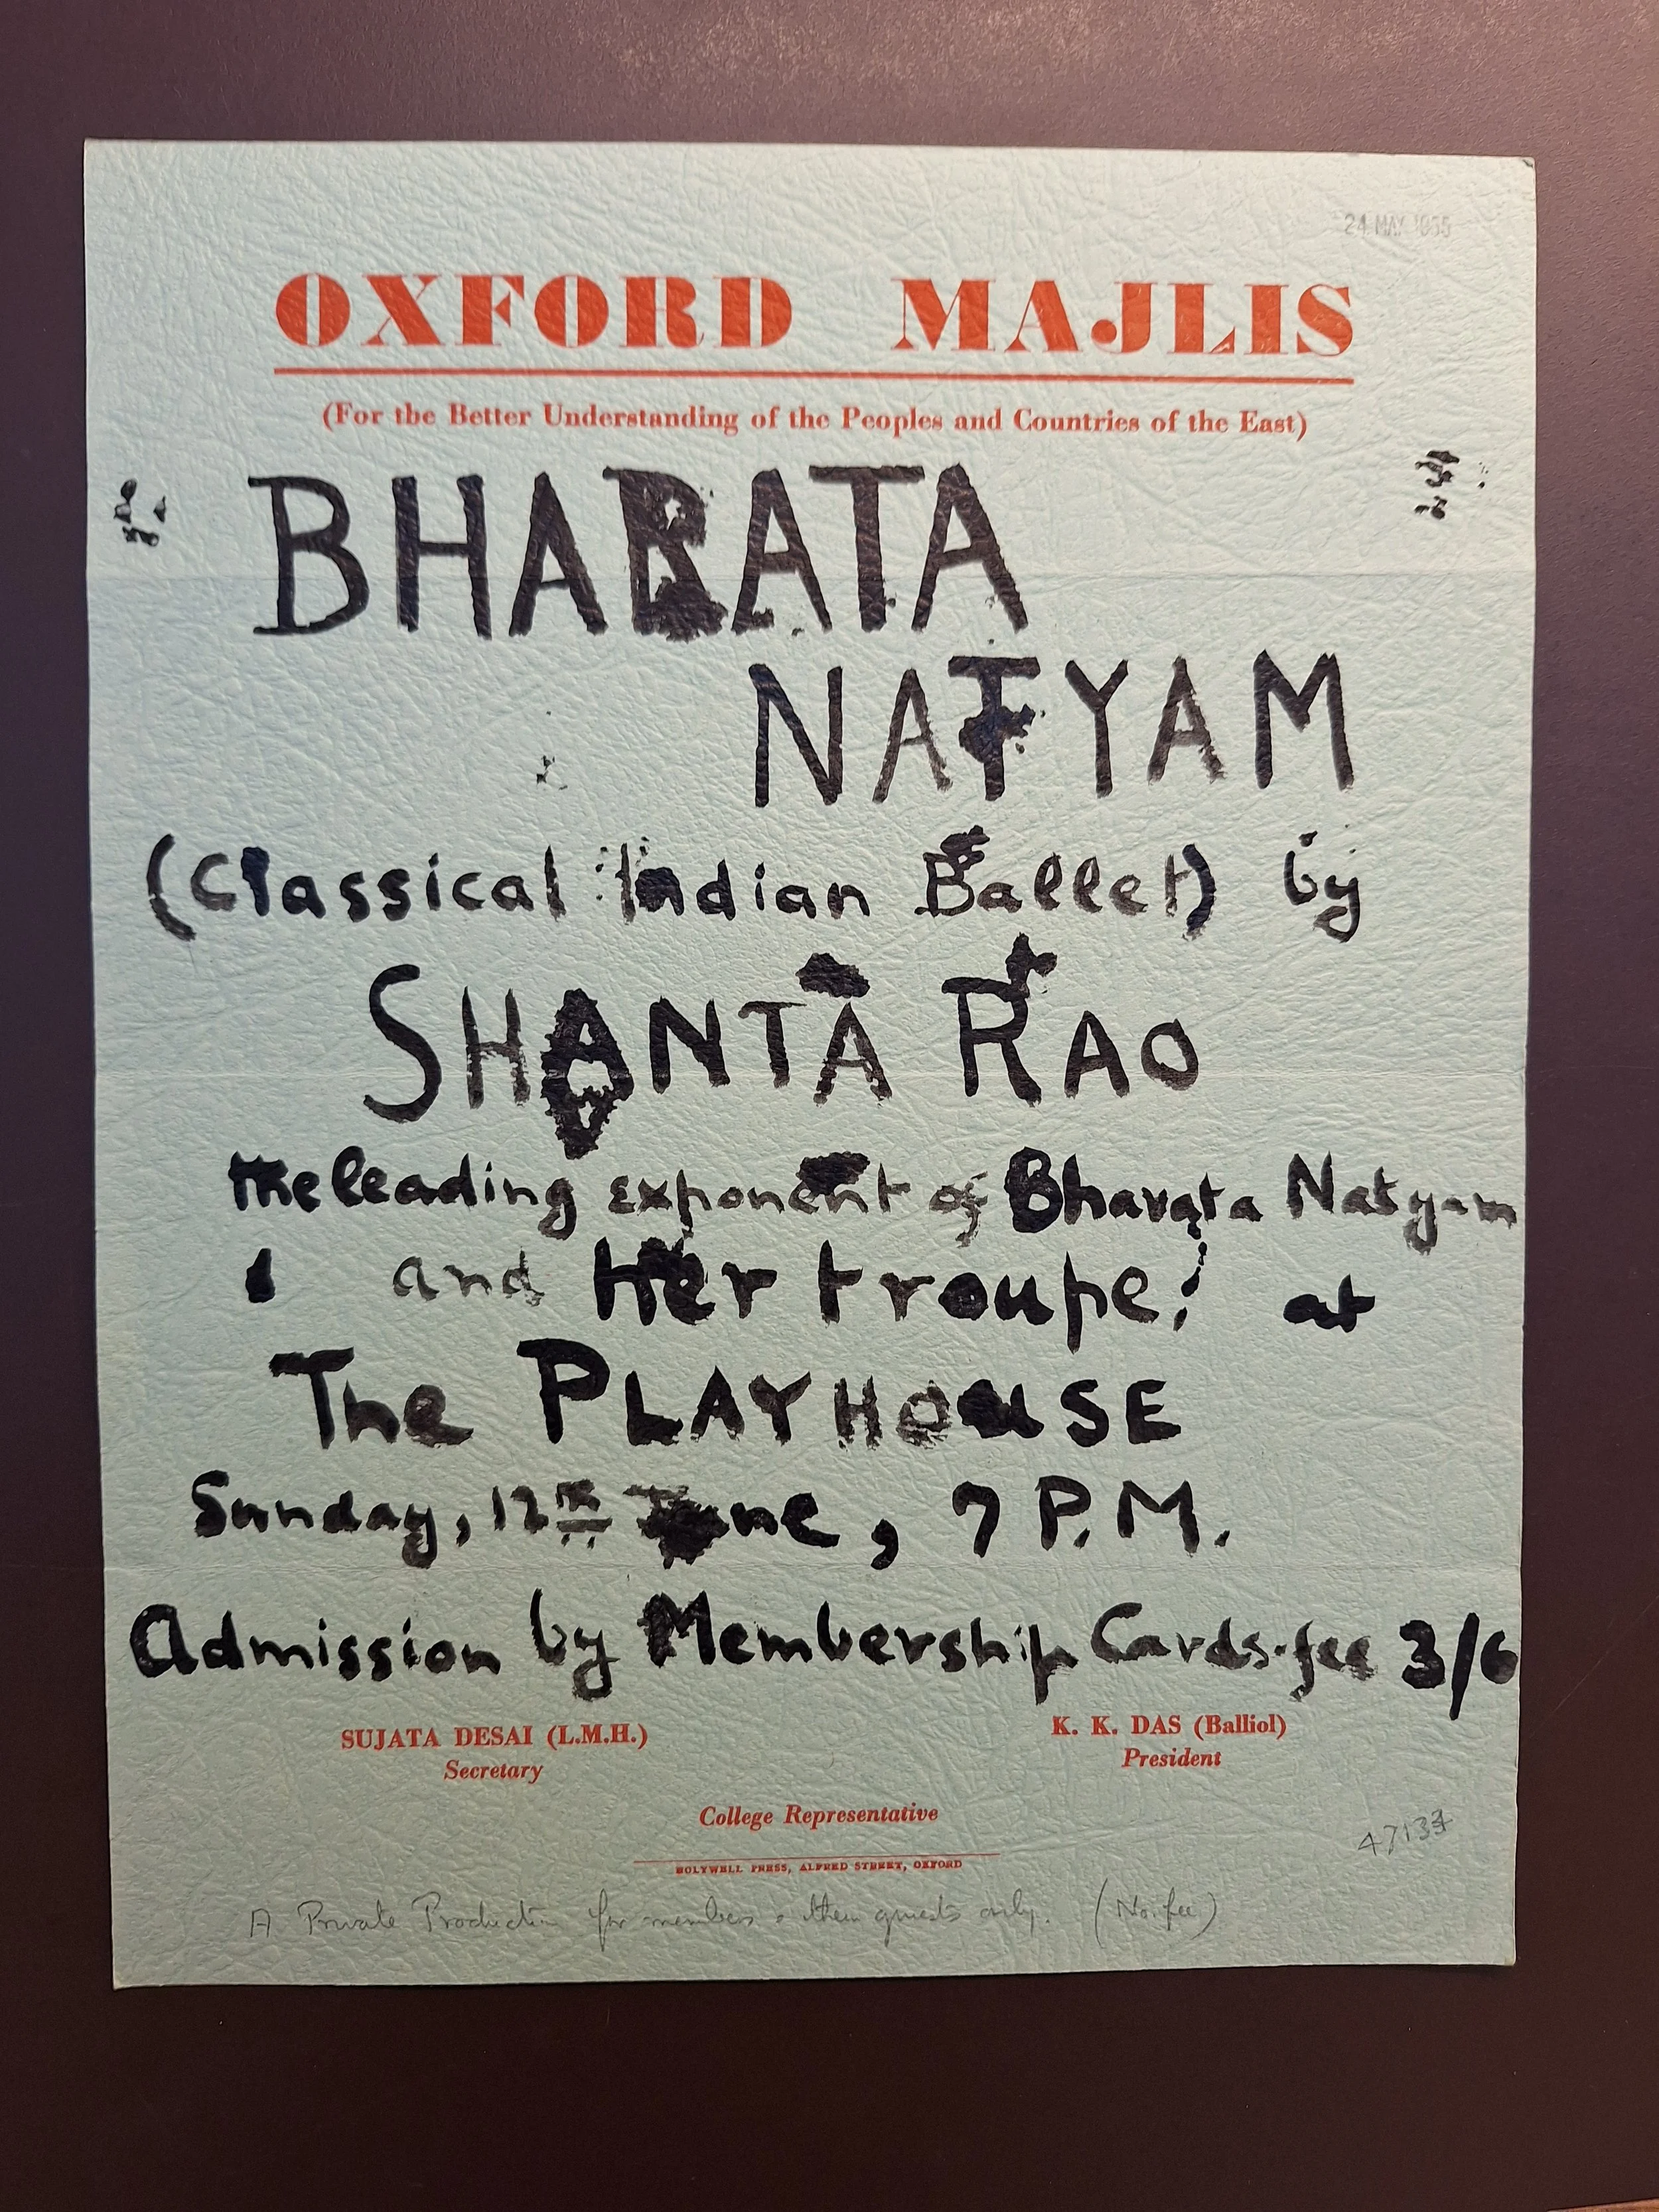 24 MAY 1955
OXFORD MAJLIS
(For the Better Understanding of the Peoples and Countries of the East)
BHARATA
NATYAM
(Classical Indian Ballet) by
SHANTA RAO
the leading exponent of Bharata Natyam
and Her troupe; at
The PLAYHOUSE
Sunday, 12th June, 7 P.M.
Admission by Membership Cards-fee 3/6
SUJATA DESAI (L.M.H.)
Secretary
K. K. DAS (Balliol)
President
College Representative
HOLYWELL PRESS, ALFRED STREET, OXFORD
A Private Production for members & their guests only. (No fee)